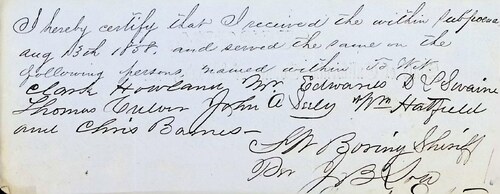 I hereby certify that I received the within subpoena
aug 13th 1858, and served the same on the
following persons, named within To Wit
Clark Howland Mr Edwards D L Swaine
Thomas Culver John A July Wm Hatfield
and Chris Barnes-
S W Boring Sheriff
Per J B